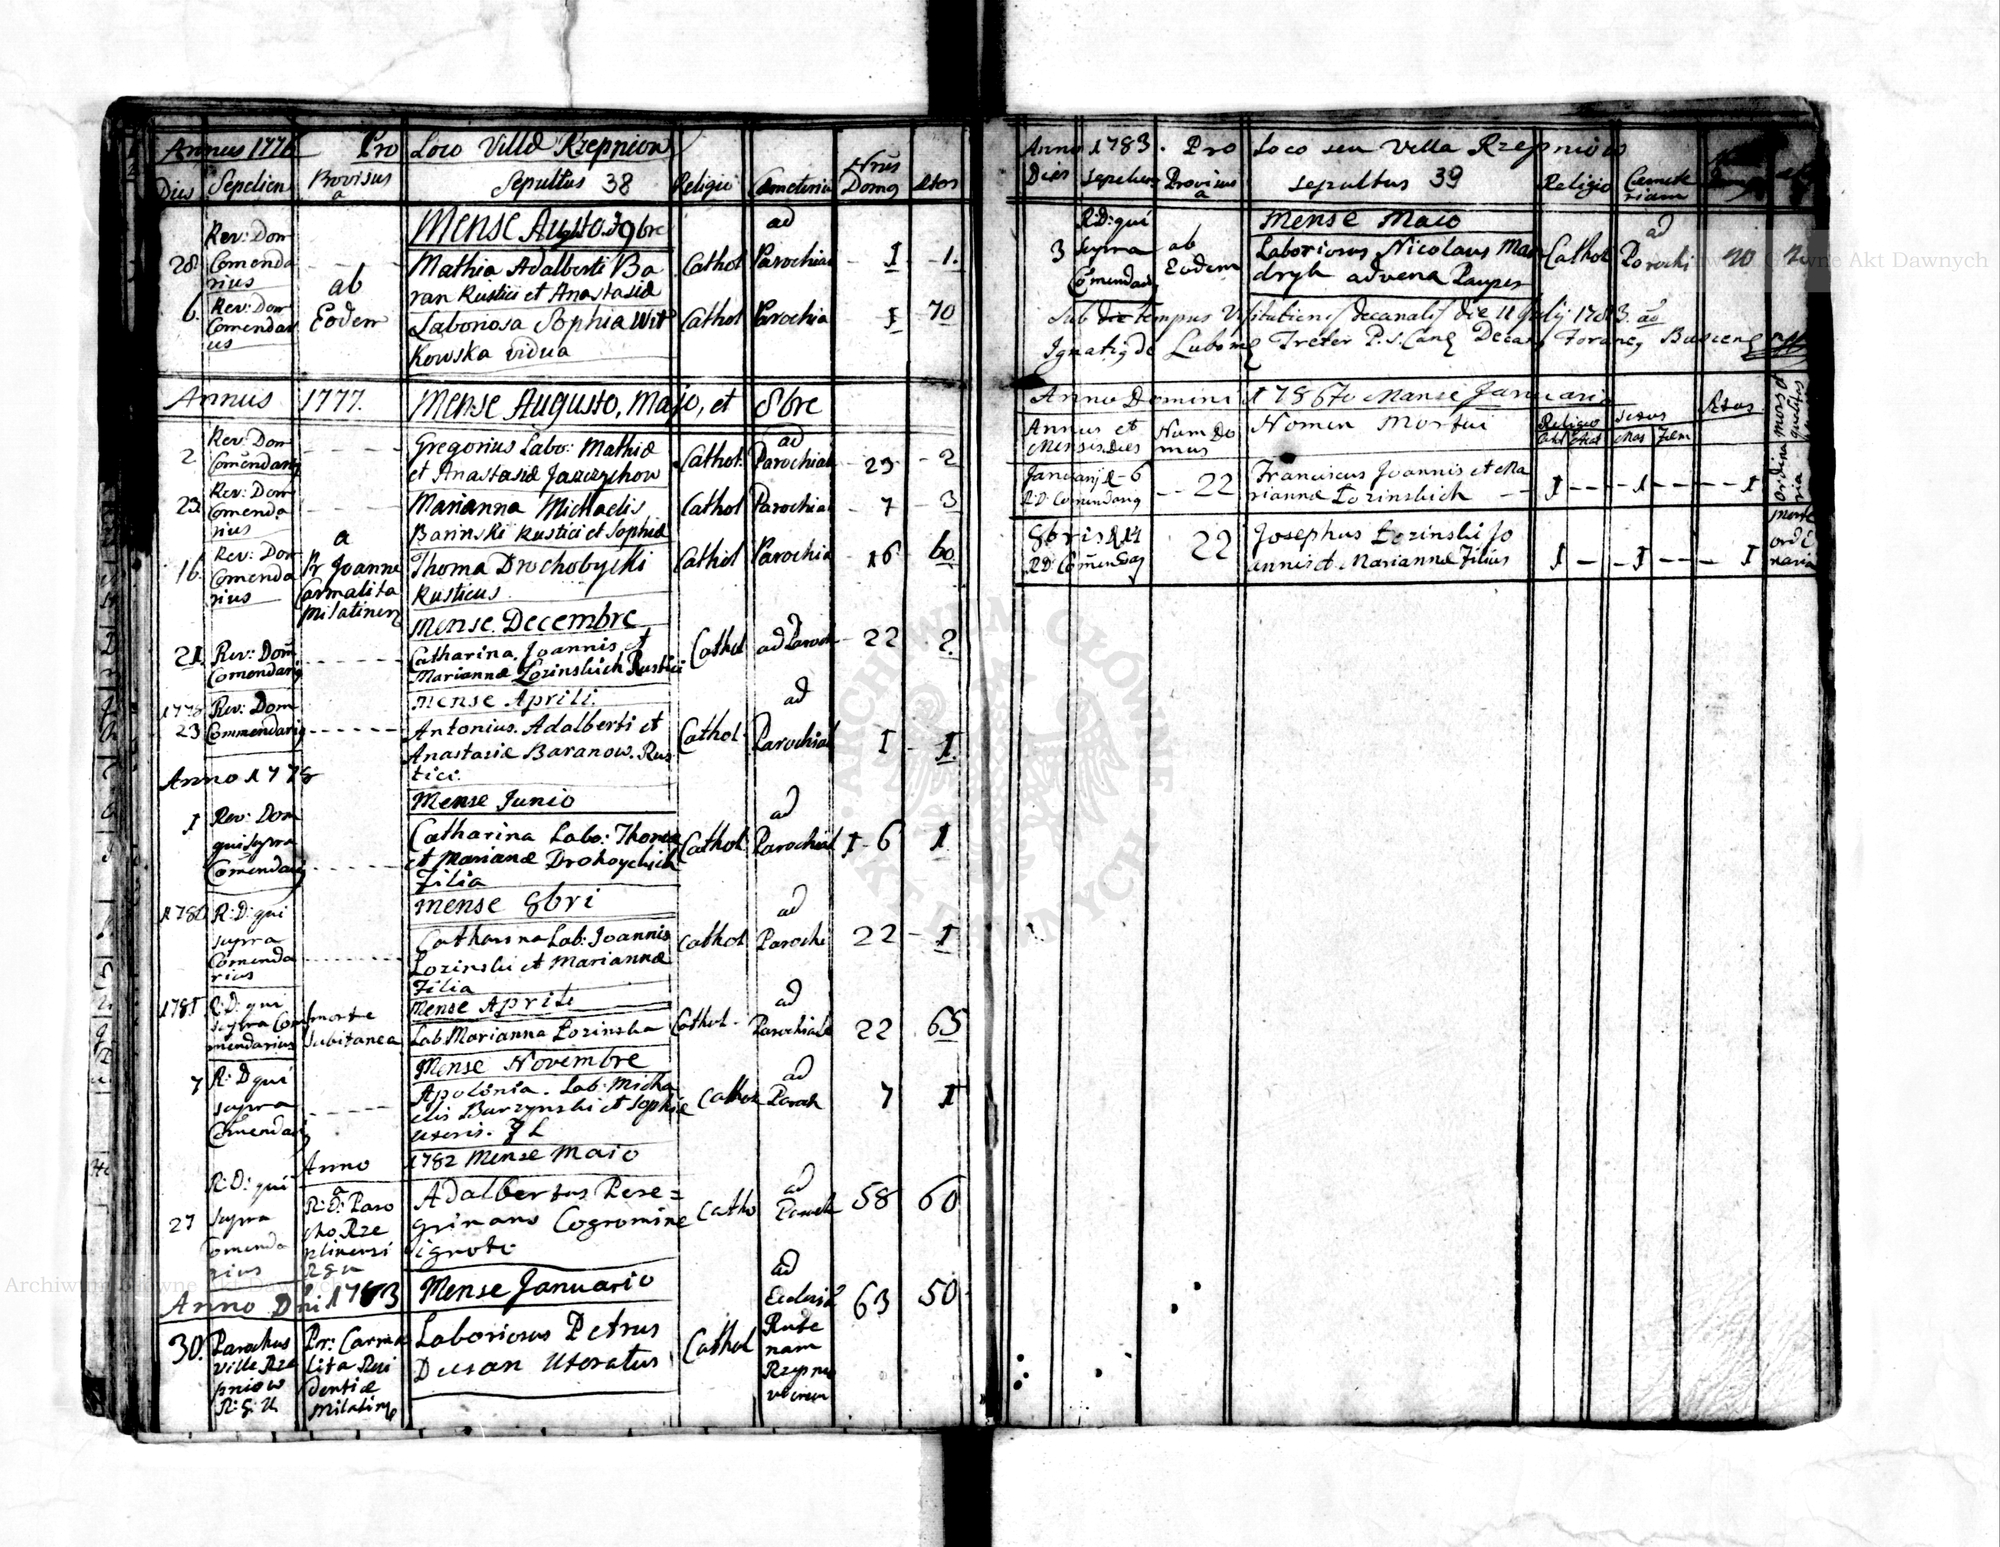 Annus 1776 Pro Loco Villæ Rzepniow
Dies Sepeliens Provisus a Sepultus 38 Religio Cœmeteria Nrus Domq Ætas
Mense Augusto. 9bre
28 Rev: Dom Comenda rius Mathia Adalberti Ba ran Rustici et Anastasiæ Cathol ad Parochial 1 1.
6. Rev: Dom Comendari us ab Eodem Laboriosa Sophia Wit kowska vidua Cathol Parochia 1 70
Annus 1777. Mense Augusto, Majo, et 8bre
2 Rev: Dom Comendariq Gregorius Labo: Mathiæ et Anastasiæ Jaszczychow Cathol. ad Parochial 23 2
23 Rev: Dom Comenda rius Marianna Michaelis Barinski Rustici et Sophiæ Cathol Parochial 7 3
16. Rev: Dom Comenda rius a Pr Joanne Carmalita Milatinen Thoma Drochobycki Rusticus Cathol Parochia 16 60
Mense Decembre
21. Rev: Dom Comendariq Catharina Joannis et Mariannæ Lozinskich Rustici Cathol ad Paroch 22 2.
Mense Aprili.
1778 23 Rev: Dom Commendariq Antonius. Adalberti et Anastasiæ Baranow. Rus tici. Cathol. ad Parochial 1 1.
Anno 1778
Mense Junio
1 Rev: Dom qui supra Comendariq Catharina Labo: Thomæ et Marianæ Drohoyckich Filia Cathol ad Parochial 1-6 1
mense 8bri
1780 R: D: qui supra Comenda rius Catharina Lab: Joannis Lozinski et Mariannæ Filia Cathol ad Parochi 22 1
Mense Aprili
1781 R: D: qui supra Com mendarius morte subitanea Lab. Marianna Lozinska Cathol. ad Parochiale 22 65
Mense Novembre
7 R: D qui supra Comendariq Apolonia. Lab: Micha elis Burzynski et Sophiæ uxoris. Cathol ad Paroch 7 1
Anno 1782 Mense Maio
27 R: D: qui supra Comenda rius a R: D: Paro cho Rze pliniensi Adalbertus Pere= grinans Cogromine ignoto Catho ad Paroch 58 60
Anno Dni 1783 Mense Januario
30. Parochus villæ Rze pniow R: G: U Pr: Carma lita Resi dentiæ Milatinq Laboriosus Petrus Dusan Uxoratus Cathol ad Ecclesia Rute nam Rzepnio viensem 63 50
Anno 1783. Pro Loco seu Villa Rzepniow
Dies sepeliens Provisus a sepultus 39 Religio Cæmete rium
mense Maio
3 R: D: qui supra Comendariq ab Eodem Laboriosus Nicolaus Man dryk advena Pauper Cathol ad Parochi 20
Sub tempus Visitationis decanalis die 11 Julij 1783.
Ignatiq de Treter P. S. Decanq Foraneq Buscenq
Anno Domini 1786to Mense Januario
Annus et Mensis. Dies Num Do mus Nomen Mortui Religio Sexus Ætas
Mas Fæm
Januarij 6 R: D: Comendariq 22 Franciscus Joannis et Ma riannæ Lozinskich 1 1 1
8bris 14 R: D: Comendaq 22 Josephus Lozinski Jo annis et Mariannæ Filius 1 1 1 morte ordi naria
ARCHIWUM GŁÓWNE AKT DAWNYCH
Archiwum Główne Akt Dawnych
Archiwum Główne Akt Dawnych